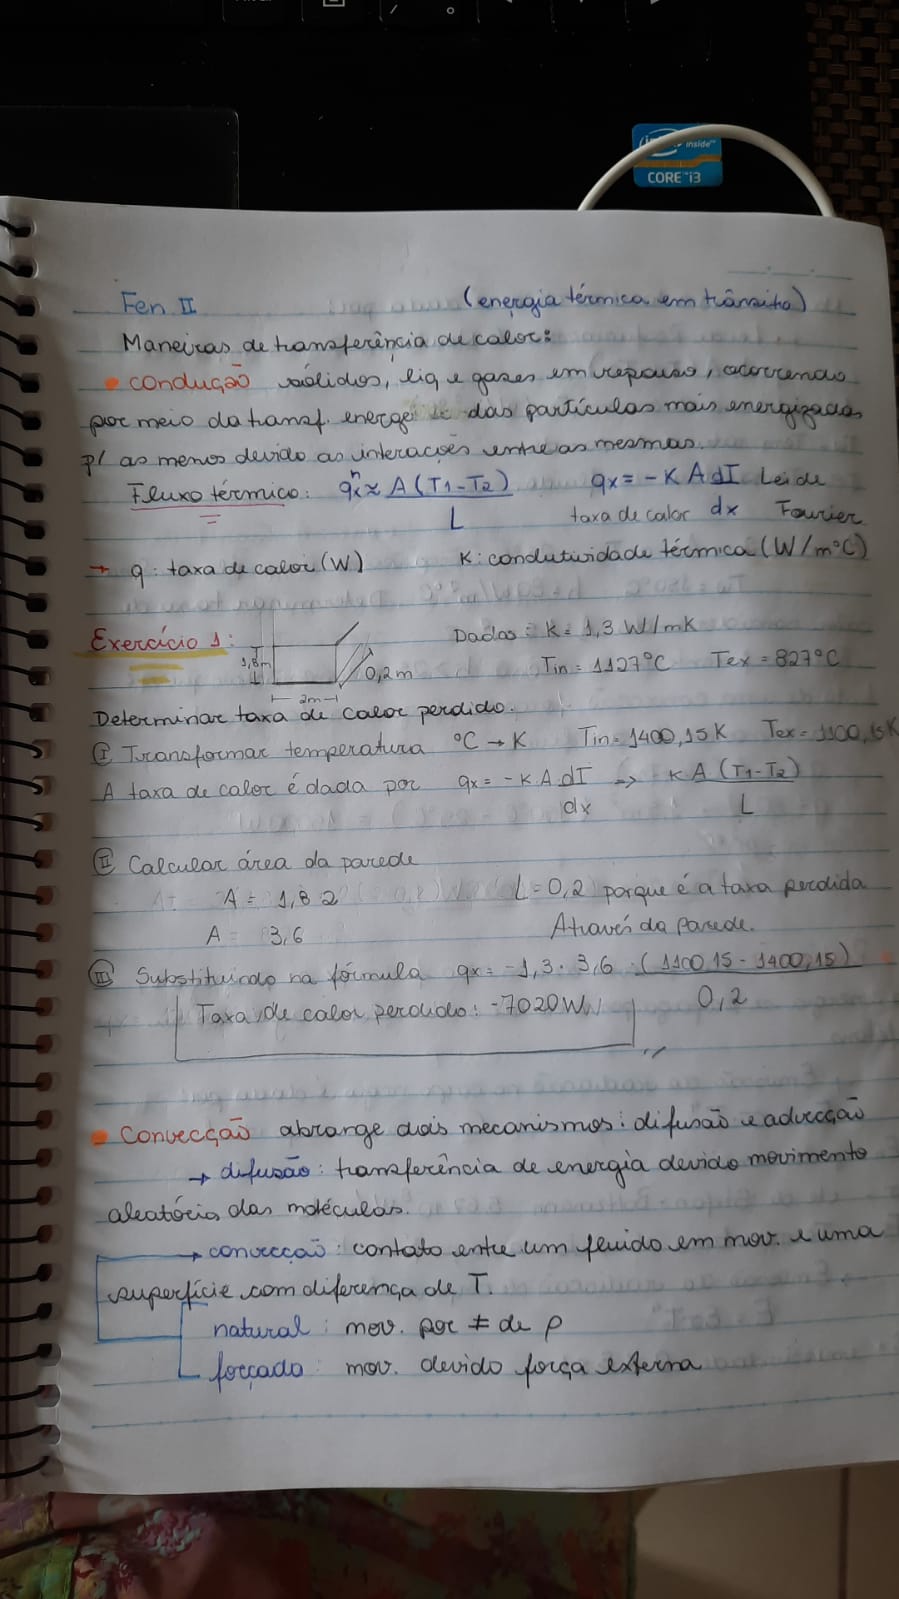 inside™
CORE™i3
Fen II (energia térmica em trânsito)
Maneiras de transferência de calor:
• condução sólidos, liq e gases em repouso, ocorrendo
por meio da transf. energe das partículas mais energizadas
p/ as menos devido as interações entre as mesmas.
Fluxo térmico: q"x ≈ A(T1-T2)/L qx = -K A dT/dx Lei de
taxa de calor Fourier
→ q: taxa de calor (W) K: condutividade térmica (W/m°C)
Exercício 1: 1,8m 2m 0,2m Dados: K = 1,3 W/mK
Tin = 1127°C Tex = 827°C
Determinar taxa de calor perdido.
I Transformar temperatura °C → K Tin = 1400,15K Tex = 1100,15K
A taxa de calor é dada por qx = -K A dT/dx → K A (T1-T2)/L
II Calcular área da parede
A = 1,8 2 L = 0,2 porque é a taxa perdida
A = 3,6 Através da parede.
III Substituindo na fórmula qx = -1,3 · 3,6 · (1100,15 - 1400,15)/0,2
Taxa de calor perdido: -7020W
• Convecção abrange dois mecanismos: difusão e advecção
→ difusão: transferência de energia devido movimento
aleatório das moléculas.
→ convecção: contato entre um fluido em mov. e uma
superfície com diferença de T.
natural: mov. por ≠ de ρ
forçada: mov. devido força externa